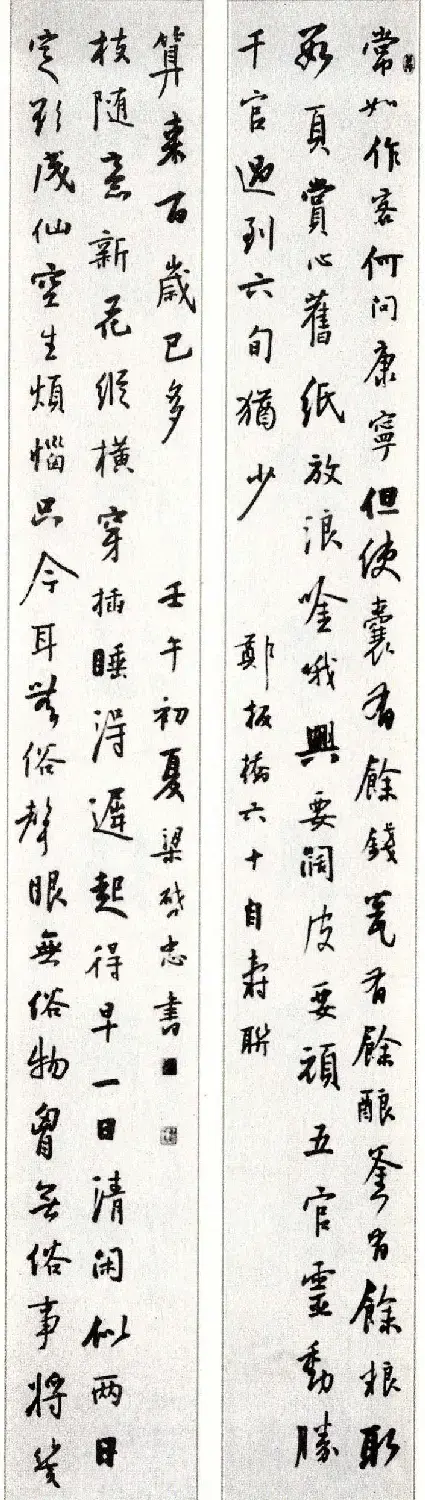 常如作客何問康寧但使囊有餘錢甕有餘釀釜有餘粮取
數頁賞心舊紙放浪唫哦興要闊皮要頑五官靈動勝
千官過到六旬猶少
鄭板橋六十自壽聯
定欲成仙空生煩惱只令耳無俗聲眼無俗物胷無俗事將幾
枝隨意新花縱橫穿插睡得遲起得早一日清閑似兩日
算來百歲已多
壬午初夏梁啟忠書